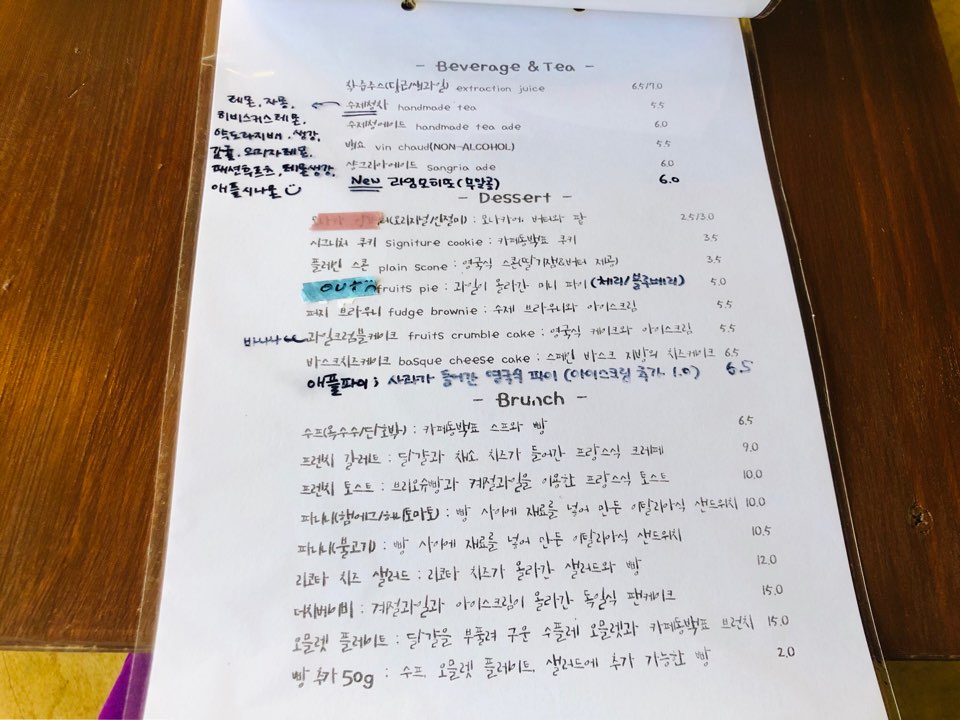 - Beverage & Tea -
착즙주스(당근/생과일) extraction juice 6.5/7.0
레몬, 자몽, 수제청차 handmade tea 5.5
히비스커스레몬, 수제청에이드 handmade tea ade 6.0
약도라지배, 생강, 뱅쇼 vin chaud(NON-ALCOHOL) 5.5
감귤, 오미자레몬, 샹그리아에이드 sangria ade 6.0
패션후르츠, 레몬생강, New 과일모히또(무알콜) 6.0
애플시나몬
- Dessert -
(오리지널/인절미) : 모나카에 버터와 팥 2.5/3.0
시그니처 쿠키 signiture cookie : 카페동박표 쿠키 3.5
플레인 스콘 plain scone : 영국식 스콘(딸기잼&버터 제공) 3.5
OUT fruits pie : 과일이 올라간 미니 파이 (체리/블루베리) 5.0
퍼지 브라우니 fudge brownie : 수제 브라우니와 아이스크림 5.5
바나나 과일크럼블케이크 fruits crumble cake : 영국식 케이크와 아이스크림 5.5
바스크치즈케이크 basque cheese cake : 스페인 바스크 지방의 치즈케이크 6.5
애플파이 : 사과가 들어간 영국식 파이 (아이스크림 추가 1.0) 6.5
- Brunch -
수프(옥수수/단호박) : 카페동박표 스프와 빵 6.5
프렌치 갈레트 : 달걀과 채소, 치즈가 들어간 프랑스식 크레페 9.0
프렌치 토스트 : 브리오슈빵과 계절과일을 이용한 프랑스식 토스트 10.0
파니니(햄에그/허니토마토) : 빵 사이에 재료를 넣어 만든 이탈리아식 샌드위치 10.0
파니니(불고기) : 빵 사이에 재료를 넣어 만든 이탈리아식 샌드위치 10.5
리코타 치즈 샐러드 : 리코타 치즈가 올라간 샐러드와 빵 12.0
더치베이비 : 계절과일과 아이스크림이 올라간 독일식 팬케이크 15.0
오믈렛 플레이트 : 달걀을 부풀려 구운 수플레 오믈렛과 카페동박표 브런치 15.0
빵 추가 50g : 수프, 오믈렛 플레이트, 샐러드에 추가 가능한 빵 2.0